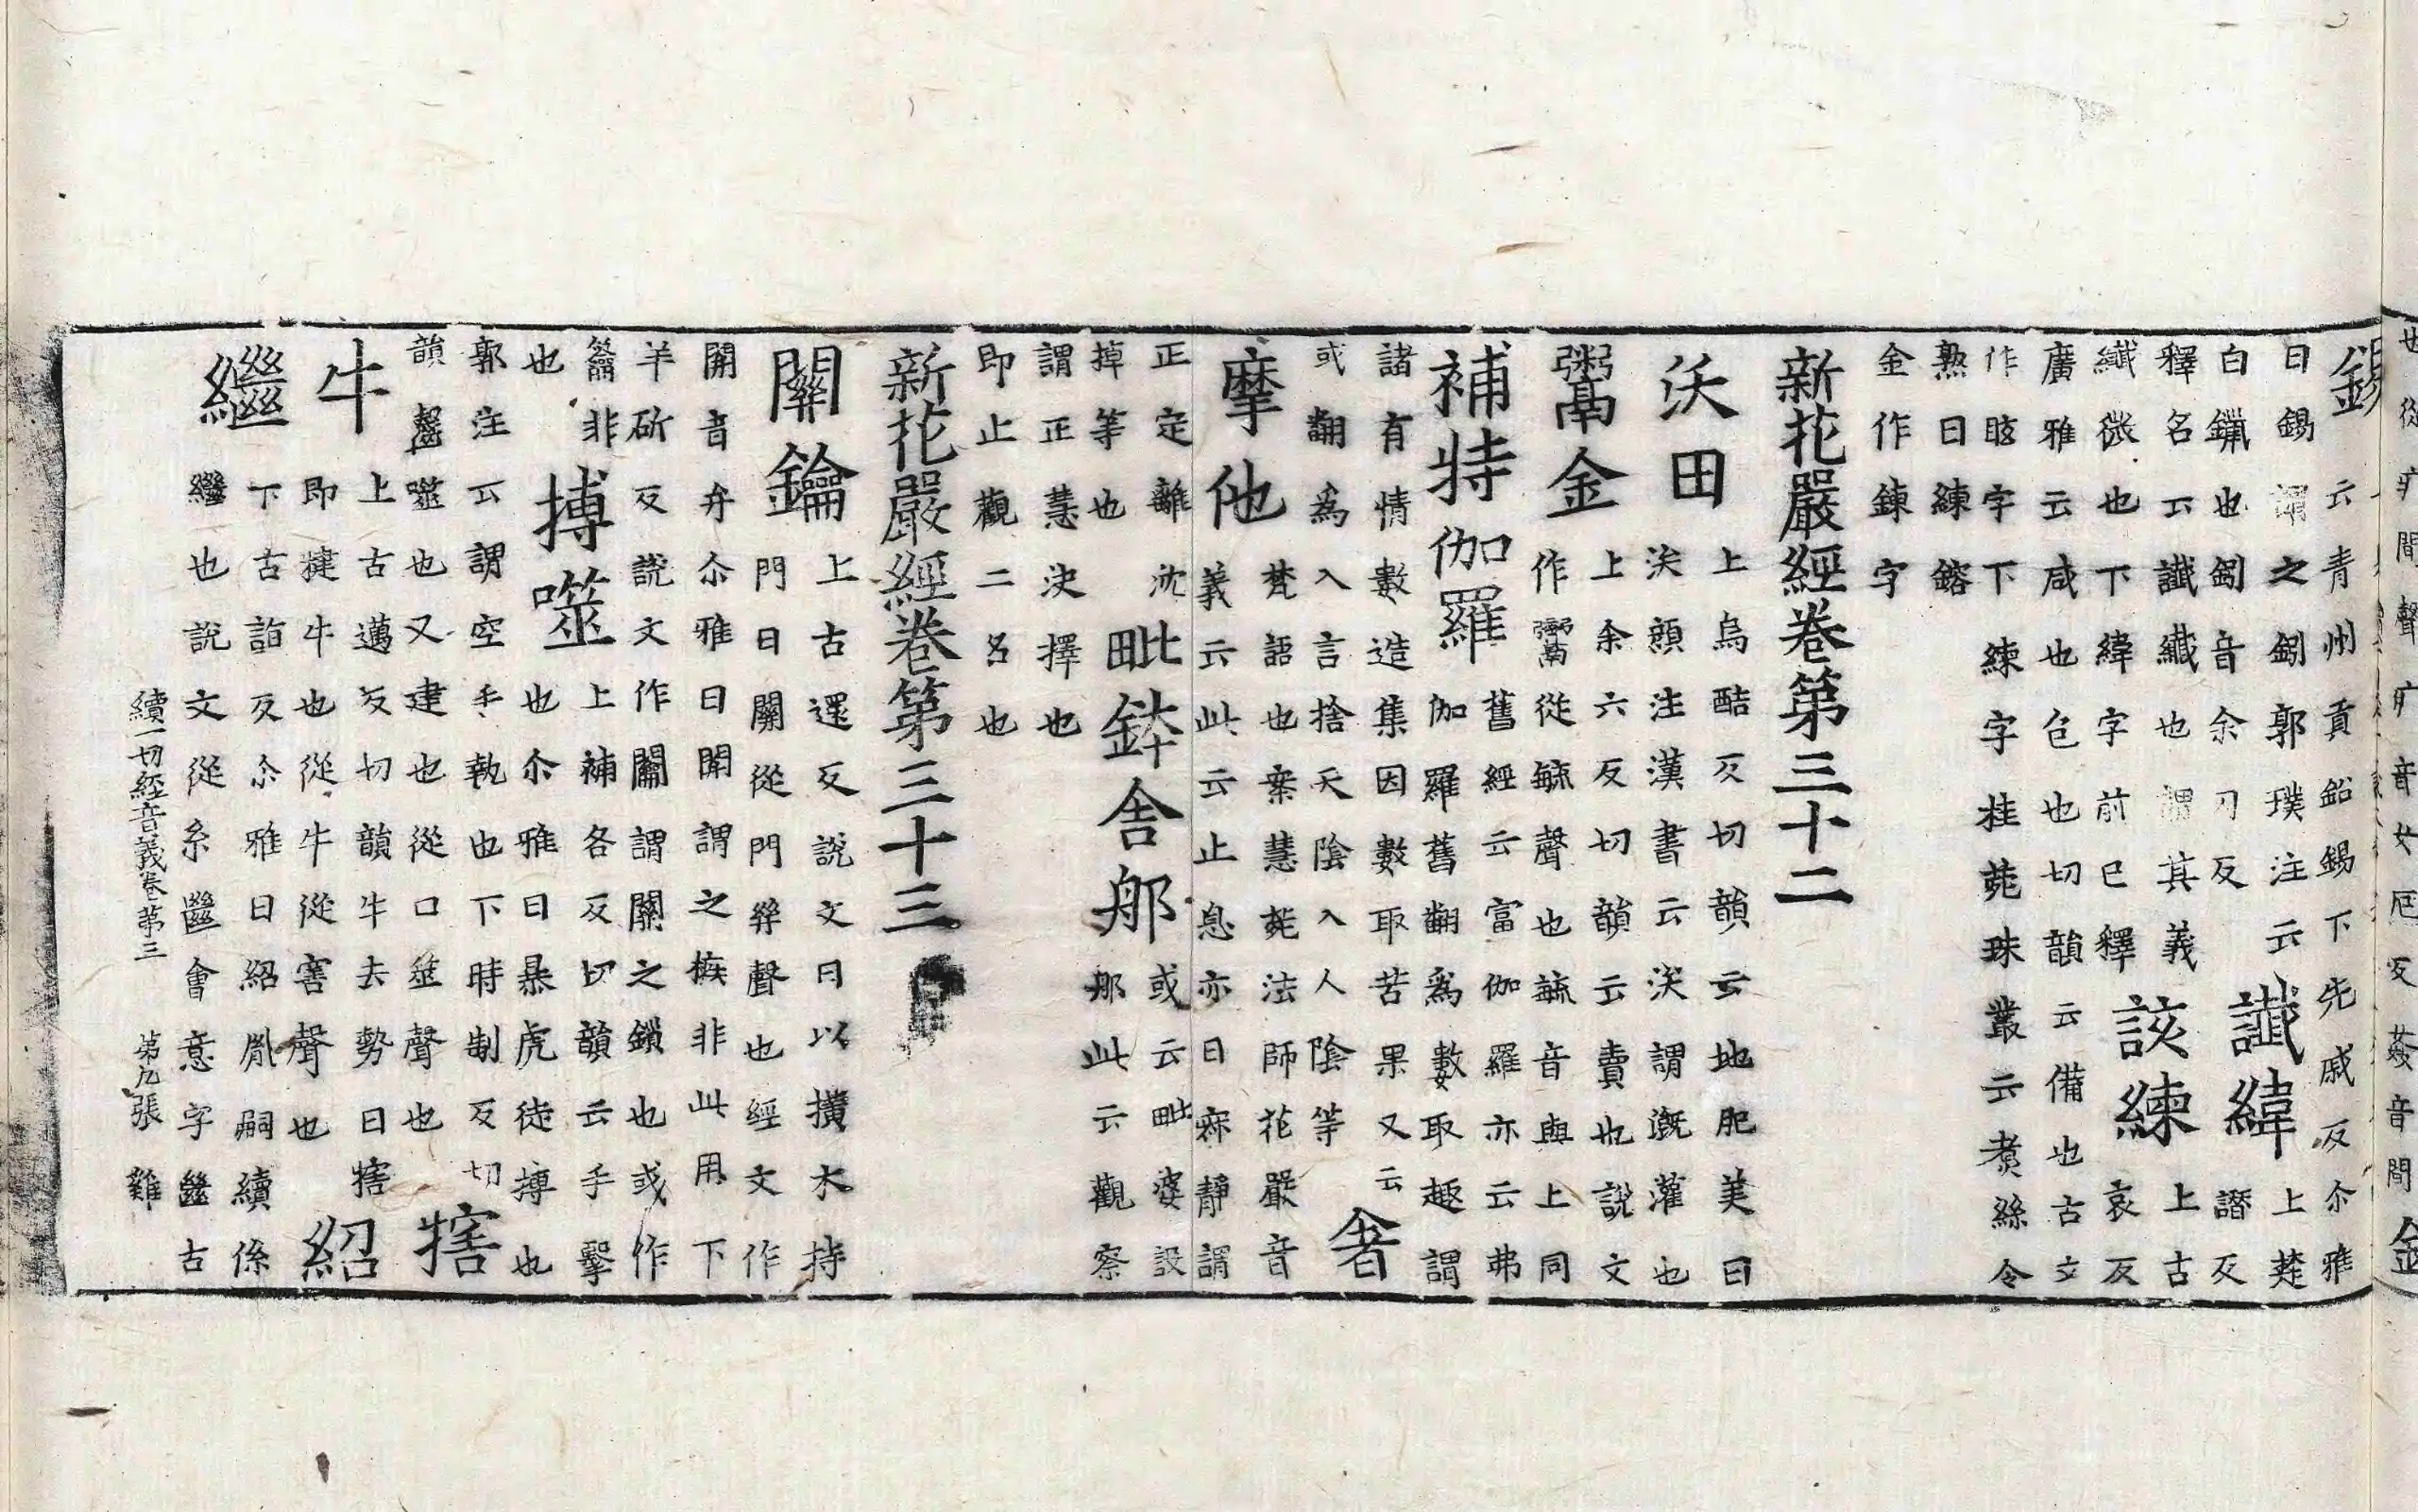 也從疒間聲疒音女厄反姦音間
錫云青州貢鉛錫下先戚反尒雅
曰錫謂之鈏郭璞注云
白鑞也鈏音余刃反
讖緯上楚譖反
釋名云讖纖也謂其義
纖微也下緯字前已釋
該練上古哀反
廣雅云咸也包也切韻云備也古文
作字下練字桂苑珠叢云煑絲令
熟曰練鎔
金作鍊字
新花嚴經卷第三十二
沃田上烏酷反切韻云地肥美曰
沃顔注漢書云沃謂溉灌也
鬻金上余六反切韻云賣也說文
作鬻從毓聲也毓音與上同
補特伽羅舊經云富伽羅亦云弗
伽羅舊翻爲數取趣謂
諸有情數造集因數取苦果又云
或翻爲入言捨天陰入人陰等
奢
摩他梵語也案慧菀法師花嚴音
義云此云止息亦曰寂靜謂
正定離沈
掉等也
毗鉢舍那或云毗婆設
那此云觀察
謂正慧決擇也
即止觀二名也
新花嚴經卷第三十三
關鑰上古還反說文曰以撗木持
門曰關從門𢇇聲也經文作
開音弁尒雅曰開謂之槉非此用下
羊斫反說文作闟謂關之鎖也或作
籥非
也
搏噬上補各反切韻云手擊
也尒雅曰暴虎徒搏也
郭注云謂空手執也下時制反切
韻齧噬也又建也從口筮聲也
犗
牛上古邁反切韻牛去勢曰犗
即犍牛也從牛從害聲也
紹
繼下古詣反尒雅曰紹胤嗣續係
繼也說文從糸㡭會意字㡭古
續一切經音義卷第三 第九張 雞